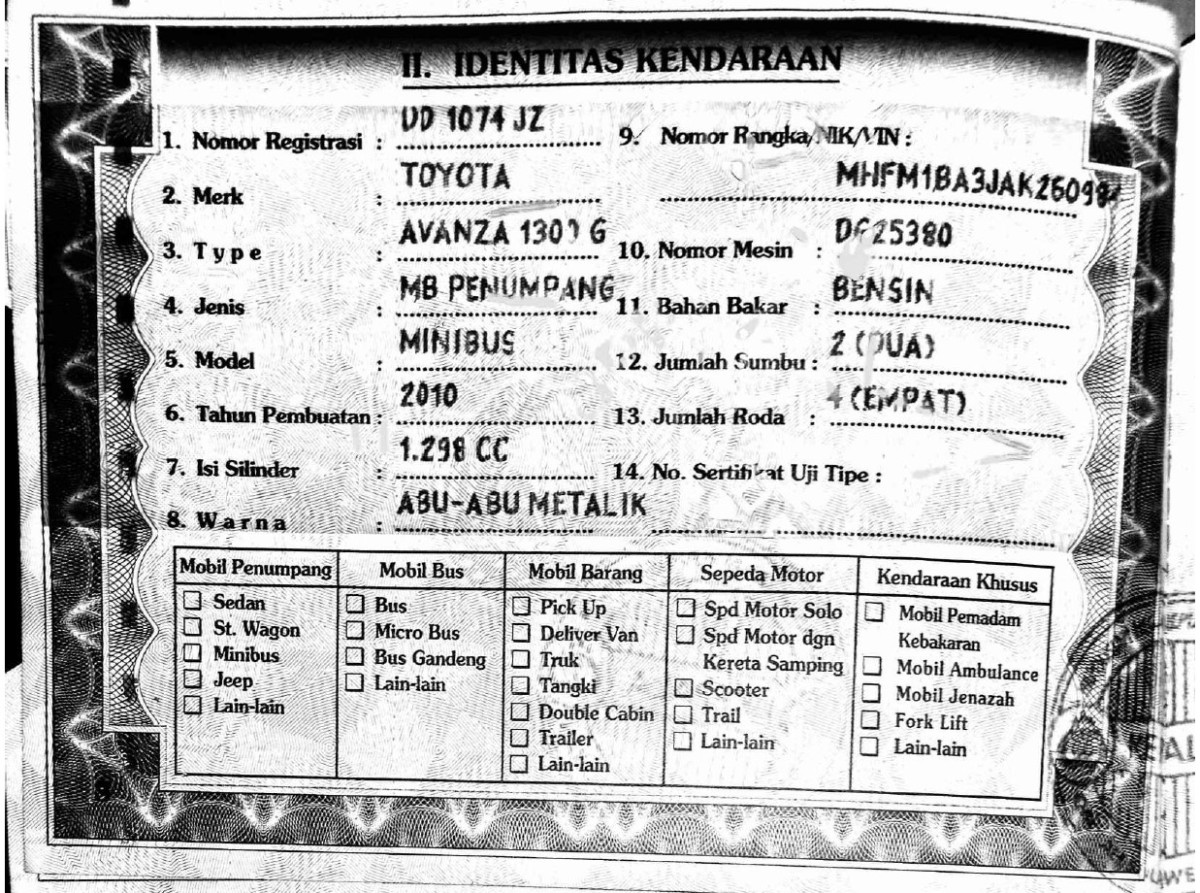 II. IDENTITAS KENDARAAN
1. Nomor Registrasi : DD 1074 JZ
2. Merk : TOYOTA
3. Type : AVANZA 1300 G
4. Jenis : MB PENUMPANG
5. Model : MINIBUS
6. Tahun Pembuatan : 2010
7. Isi Silinder : 1.298 CC
8. Warna : ABU-ABU METALIK
9. Nomor Rangka/NIK/VIN :
MHFM1BA3JAK26098
10. Nomor Mesin : 25380
11. Bahan Bakar : BENSIN
12. Jumlah Sumbu : 2 (DUA)
13. Jumlah Roda : 4 (EMPAT)
14. No. Sertifikat Uji Tipe :
Mobil Penumpang
Sedan
St. Wagon
Minibus
Jeep
Lain-lain
Mobil Bus
Bus
Micro Bus
Bus Gandeng
Lain-lain
Mobil Barang
Pick Up
Deliver Van
Truk
Tangki
Double Cabin
Trailer
Lain-lain
Sepeda Motor
Spd Motor Solo
Spd Motor dgn
Kereta Samping
Scooter
Trail
Lain-lain
Kendaraan Khusus
Mobil Pemadam
Kebakaran
Mobil Ambulance
Mobil Jenazah
Fork Lift
Lain-lain